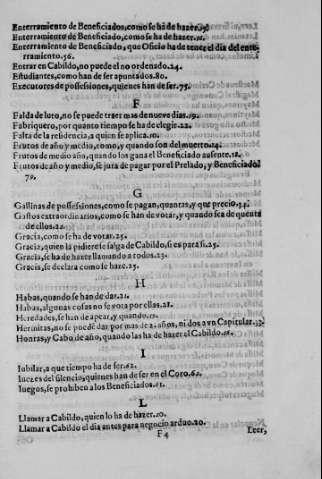 Enterramiento de Beneficiados, como se ha de hazer.
Enterramiento de Beneficiado, como se ha de hazer.
Enterramiento de Beneficiado, que Oficio ha de tener el dia del ente-
rramiento.56.
Entrar en Cabildo, no puede el no ordenado.24.
Estudiantes, como han de ser apuntados.80.
Executores de possessiones, quienes han de ser.75.
F
Falda de luto, no se puede traer mas de nueve dias.19.
Fabriquero, por quanto tiempo se ha de elegir.22.
Falta de la residencia, a quien se aplica.10.
Frutos de año y medio, como, y quando son del muerto.24.
Frutos de medio año, quando los gana el Beneficiado ausente.18.
Frutos de año y medio, se jura de pagar por el Prelado, y Beneficiado
79.
G
Gallinas de possessiones, como se pagan, quantas, y que precio.34.
Gastos extraordinarios, como se han de votar, y quando sea de quenta
de ellos.22.
Gracia, como se ha de votar.25.
Gracia, quien la pidiere salga de Cabildo, si es para si.25.
Gracia, se ha de hazer llamando a todos.23.
Gracia, se declara como se haze.25.
H
Habas, quando se han de dar.21.
Habas, algunas cosas no se vota por ellas.21.
Heredades, se han de apear, y quando.
Hermitas, no se puede dar por mas de 2. años, ni dos a vn Capitular.33.
Honras, y Cabo de año, quando las ha de hazer el Cabildo.
I
Iubilar, a que tiempo ha de ser.62.
Iuezes del silencio, quienes han de ser en el Coro.62.
Iuegos, se prohiben a los Beneficiados.11.
L
Llamar a Cabildo, quien lo ha de hazer.20.
Llamar a Cabildo el dia antes para negocio arduo.20.
F4 Leer,